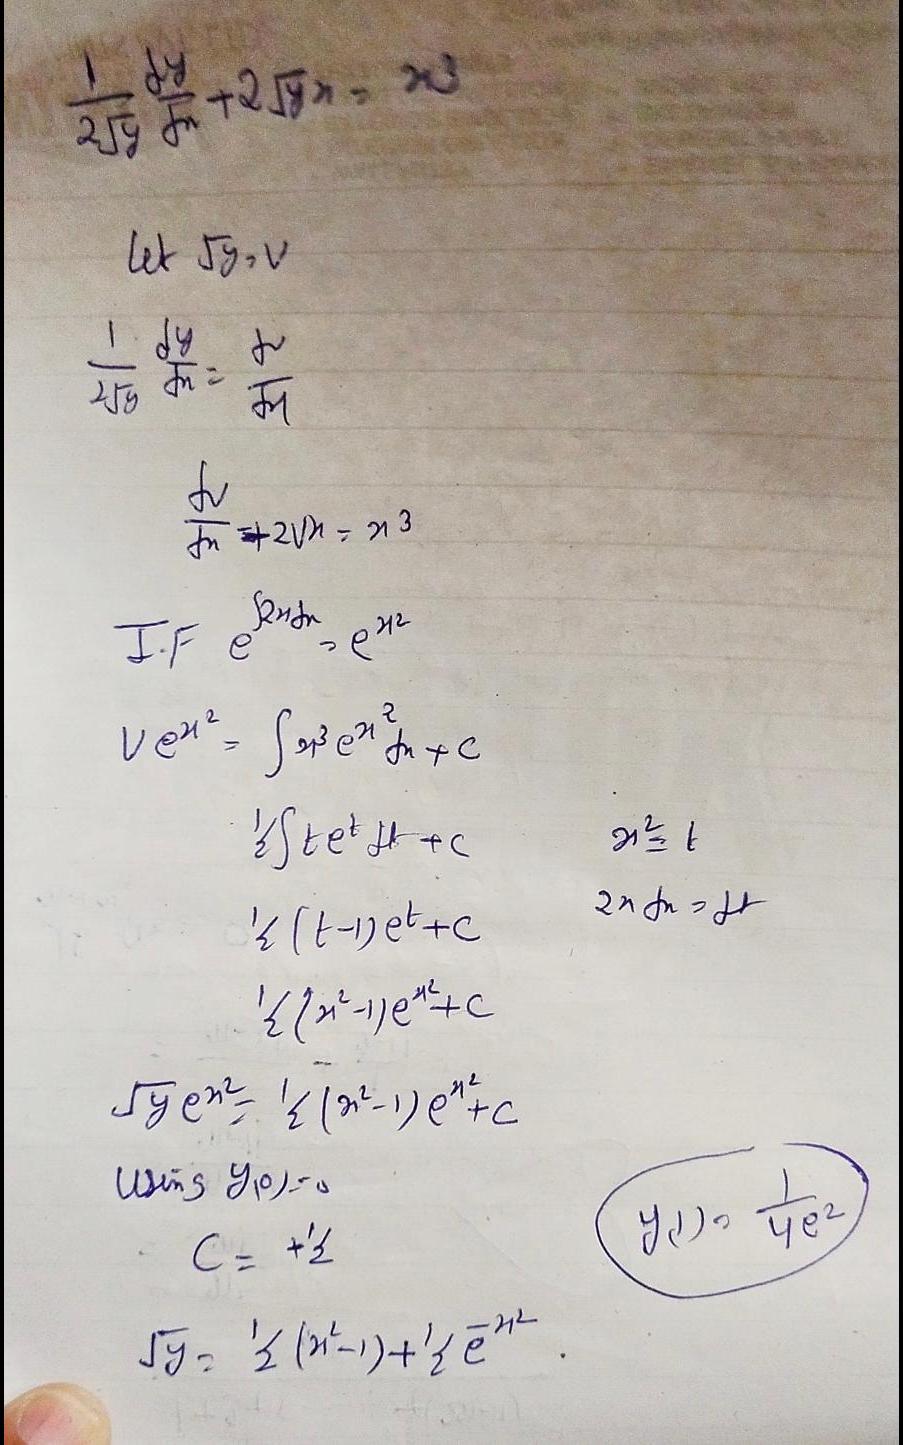 1/(2√y) dy/dx + 2√y x = x³
Let √y = v
1/(2√y) dy/dx = dv/dx
dv/dx + 2vx = x³
I.F e^(∫2x dx) = e^(x²)
v e^(x²) = ∫ x³ e^(x²) dx + C
½ ∫ t e^t dt + C
x² = t
½ (t-1) e^t + C
2x dx = dt
½ (x²-1) e^(x²) + C
√y e^(x²) = ½ (x²-1) e^(x²) + C
Using y(0) = 0
C = +½
y(1) = 1/(4e²)
√y = ½ (x²-1) + ½ e^(-x²) .